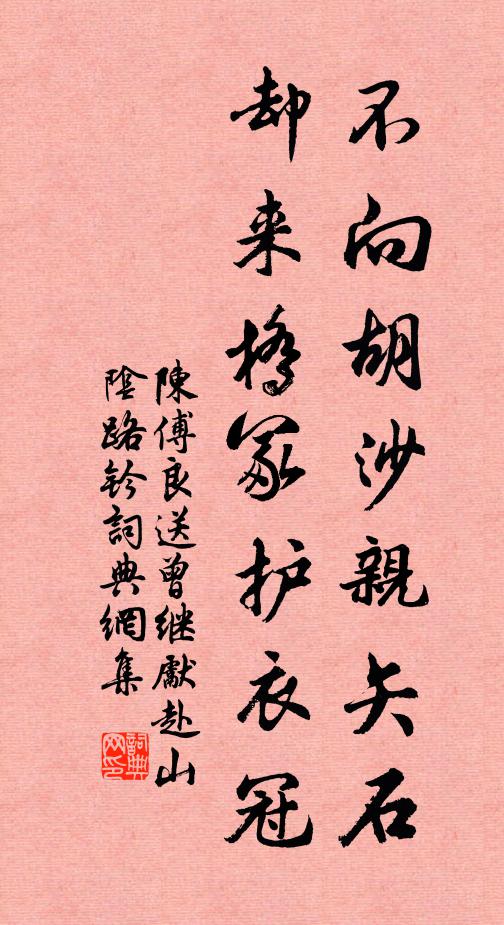 不向胡沙親矢石
却来橋冢护衣冠
陳傅良送曾继獻赴山
陰路鈐詞典網集
詞典
网印